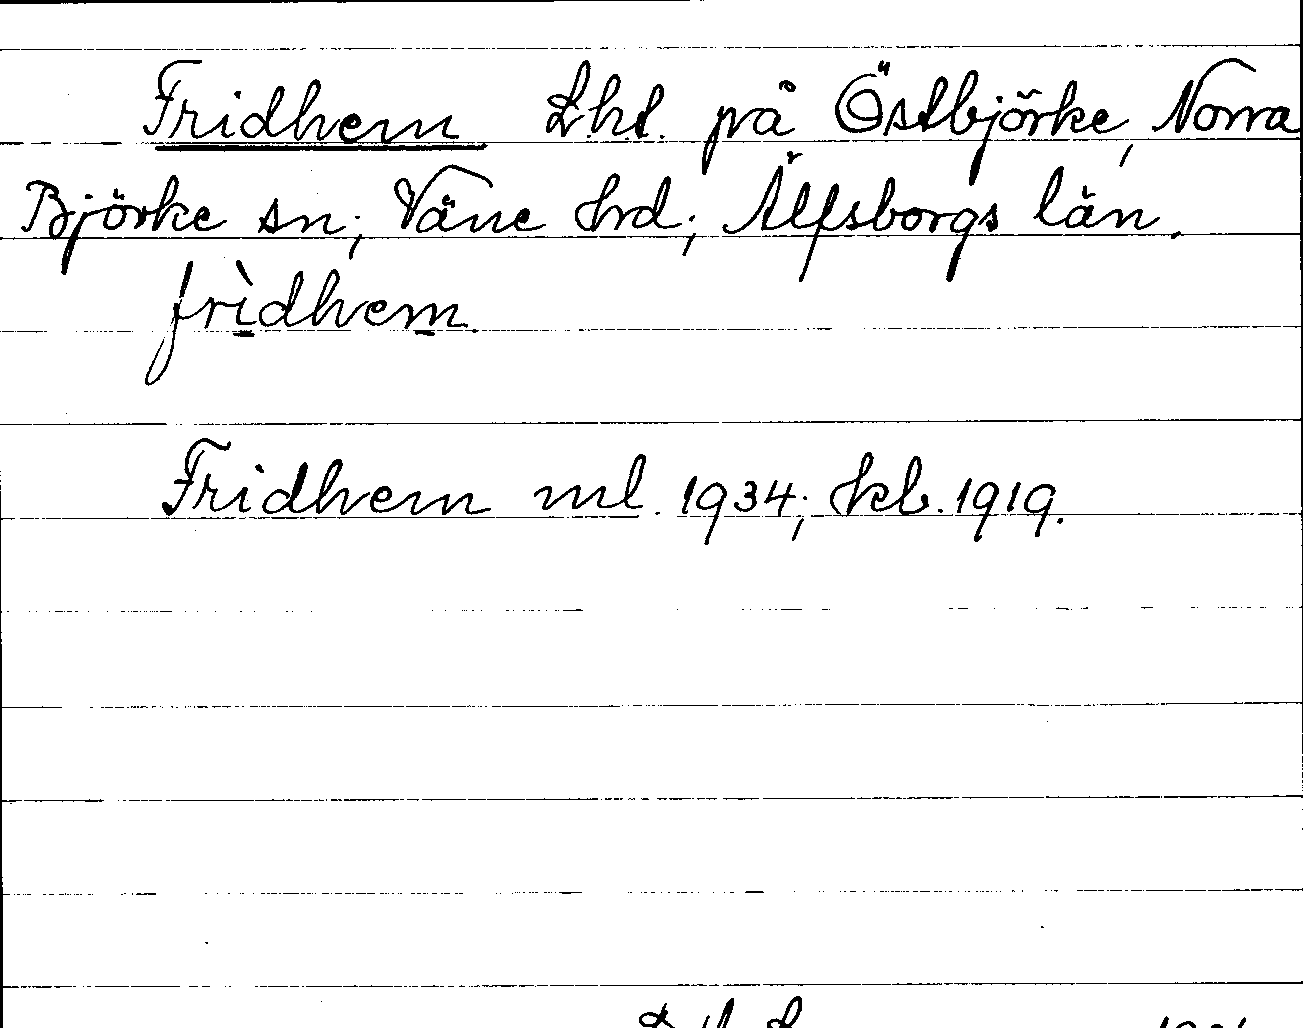 Fridhem Lht. på Östbjörke, Norra
Björke sn; Väne hrd; Älfsborgs län.
frìdhem.
Fridhem ml. 1934; kb. 1919.